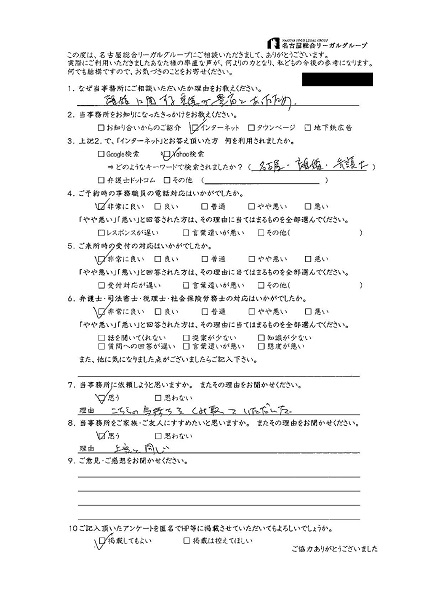 NAGOYA SOGO LEGAL GROUP
名古屋総合リーガルグループ
この度は、名古屋総合リーガルグループにご相談いただきまして、ありがとうございます。
実際にご利用いただきましたあなた様の率直な声が、何よりの力となり、私どもの今後の参考になります。
何でも結構ですので、お気づきのことをお寄せください。
1. なぜ当事務所にご相談いただいたか理由をお教えください。
離婚に関する
2. 当事務所をお知りになったきっかけをお教えください。
□お知り合いからのご紹介 ☑インターネット □タウンページ □地下鉄広告
3. 上記2.で、「インターネット」とお答え頂いた方 何を利用されましたか。
□Google検索 ☑Yahoo検索
⇒どのようなキーワードで検索されましたか?(名古屋・離婚・弁護士)
□弁護士ドットコム □その他 ( )
4. ご予約時の事務職員の電話対応はいかがでしたか。
☑非常に良い □良い □普通 □やや悪い □悪い
「やや悪い」「悪い」と回答された方は、その理由に当てはまるものを全部選んでください。
□レスポンスが遅い □言葉遣いが悪い □その他( )
5. ご来所時の受付の対応はいかがでしたか。
☑非常に良い □良い □普通 □やや悪い □悪い
「やや悪い」「悪い」と回答された方は、その理由に当てはまるものを全部選んでください。
□受付対応が遅い □言葉遣いが悪い □その他( )
6. 弁護士・司法書士・税理士・社会保険労務士の対応はいかがでしたか。
☑非常に良い □良い □普通 □やや悪い □悪い
「やや悪い」「悪い」と回答された方は、その理由に当てはまるものを全部選んでください。
□話を聞いてくれない □提案が少ない □知識が少ない
□質問への回答が遅い □言葉遣いが悪い □態度が悪い
また、他に気になりました点がございましたらご記入下さい。
7. 当事務所に依頼しようと思いますか。 またその理由をお聞かせください。
☑思う □思わない
理由 こちらの気持ちをくみ取っていただいた
8. 当事務所をご家族・ご友人にすすめたいと思いますか。 またその理由をお聞かせください。
☑思う □思わない
理由 上記と同じ
9. ご意見・ご感想をお聞かせください。
10 ご記入頂いたアンケートを匿名でHP等に掲載させていただいてもよろしいでしょうか。
☑掲載してもよい □掲載は控えてほしい
ご協力ありがとうございました